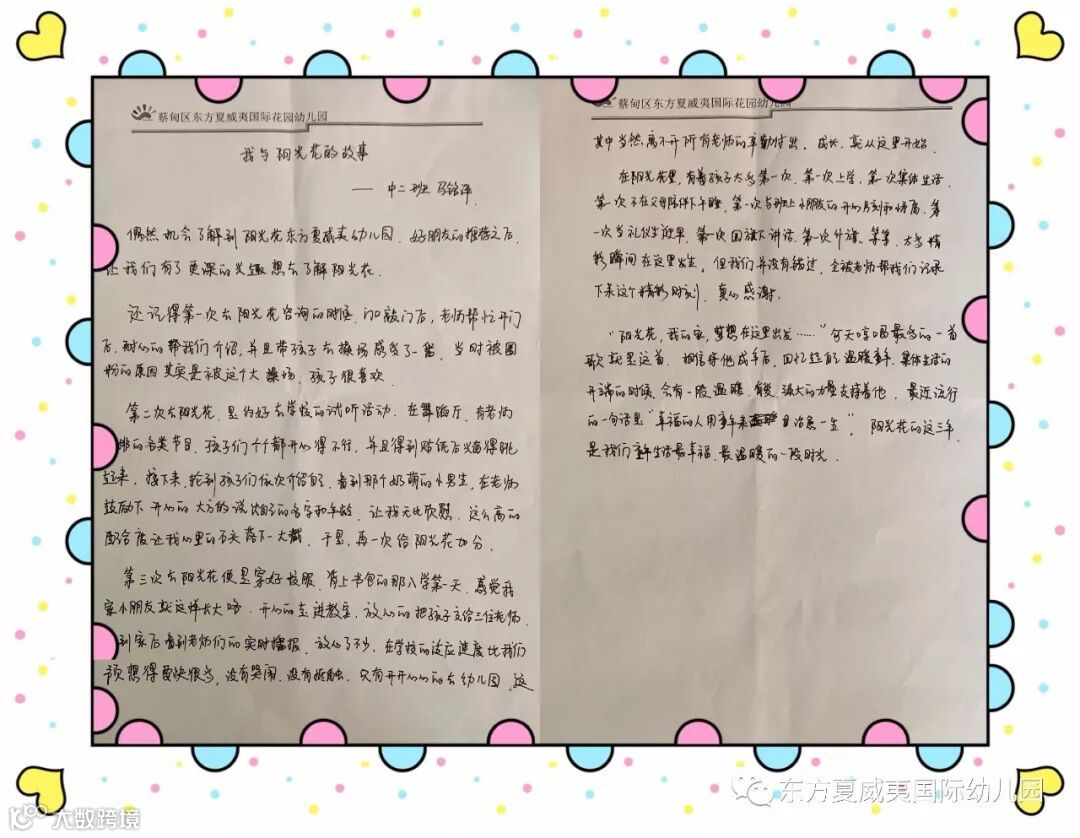 蔡甸区东方夏威夷国际花园幼儿园
我与阳光花的故事
—— 中二班 马铭泽
偶然机会了解到阳光花东方夏威夷幼儿园，好朋友的推荐之后，
让我们有了更深的兴趣想去了解阳光花．
还记得第一次去阳光花咨询的时候，门口敲门后，老师帮忙开门
后，耐心的帮我们介绍，并且带孩子去操场感受了一番，当时被圈
粉的原因其实是被这个大操场，孩子很喜欢．
第二次去阳光花，是约好去学校的试听活动，在舞蹈厅，有老师
排的各类节目，孩子们个个都开心得不行，并且得到贴纸后兴奋得跳
起来，接下来，轮到孩子们依次介绍自己，看到那个奶萌的小男生，在老师
鼓励下开心的大方的说出自己的名字和年龄，让我无比欣慰，这么高的
配合度让我心里的石头落下一大截，于是，再一次给阳光花加分．
第三次去阳光花便是穿好校服、背上书包的那入学第一天，感觉我
家小朋友就这样长大咯．开心的走进教室，放心的把孩子交给三位老师，
到家后看到老师们的实时播报，放心了不少，在学校的适应速度比我们
预想得要快很多，没有哭闹，没有抵触，只有开开心心的去幼儿园，这
蔡甸区东方夏威夷国际花园幼儿园
其中当然离不开所有老师的辛勤付出，成长，就从这里开始．
在阳光花里，有着孩子太多第一次，第一次上学，第一次集体生活，
第一次不在父母陪伴下午睡，第一次与班上小朋友的开心时刻和分离，第
一次当礼仪生迎早，第一次国旗下讲话，第一次升旗，等等，太多精
彩瞬间在这里发生，但我们并没有错过，全被老师帮我们记录
下来这个精彩时刻，真心感谢．
“阳光花，我的家，梦想在这里出发……”每天哼唱最多的一首
歌就是这首．相信等他成年后，回忆起自己温暖童年，集体生活的
开端的时候，会有一股温暖、有爱、强大的力量支持着他．最近流行
的一句话是“幸福的人用童年来治愈一生”，阳光花的这三年，
是我们童年生活最幸福、最温暖的一段时光．
东方夏威夷国际幼儿园
大数跨境